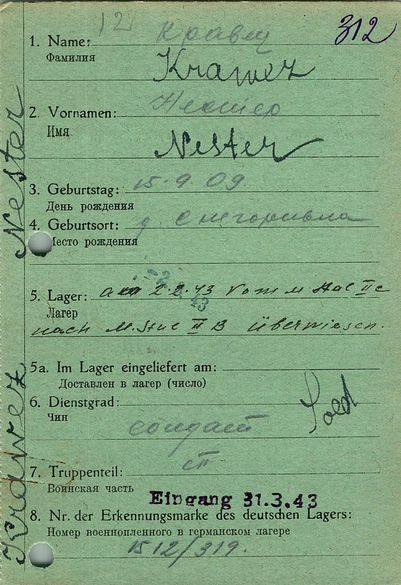 12
312
1. Name: Кравец
Фамилия
Krawez
2. Vornamen: Нестер
Имя
Nester
3. Geburtstag: 15-9 09
День рождения
4. Geburtsort: д
Место рождения
2. 2. 43
5. Lager: am 2.2.43 vom M Stal II C
Лагер
nach M. Stal II B überwiesen.
5a. Im Lager eingeliefert am:
Доставлен в лагер (число)
6. Dienstgrad:
Чин
солдат
Sold
7. Truppenteil: сп
Воинская часть
Eingang 31.3.43
8. Nr. der Erkennungsmarke des deutschen Lagers:
Номер военнопленного в германском лагере
1512/319.
Krawez Nester